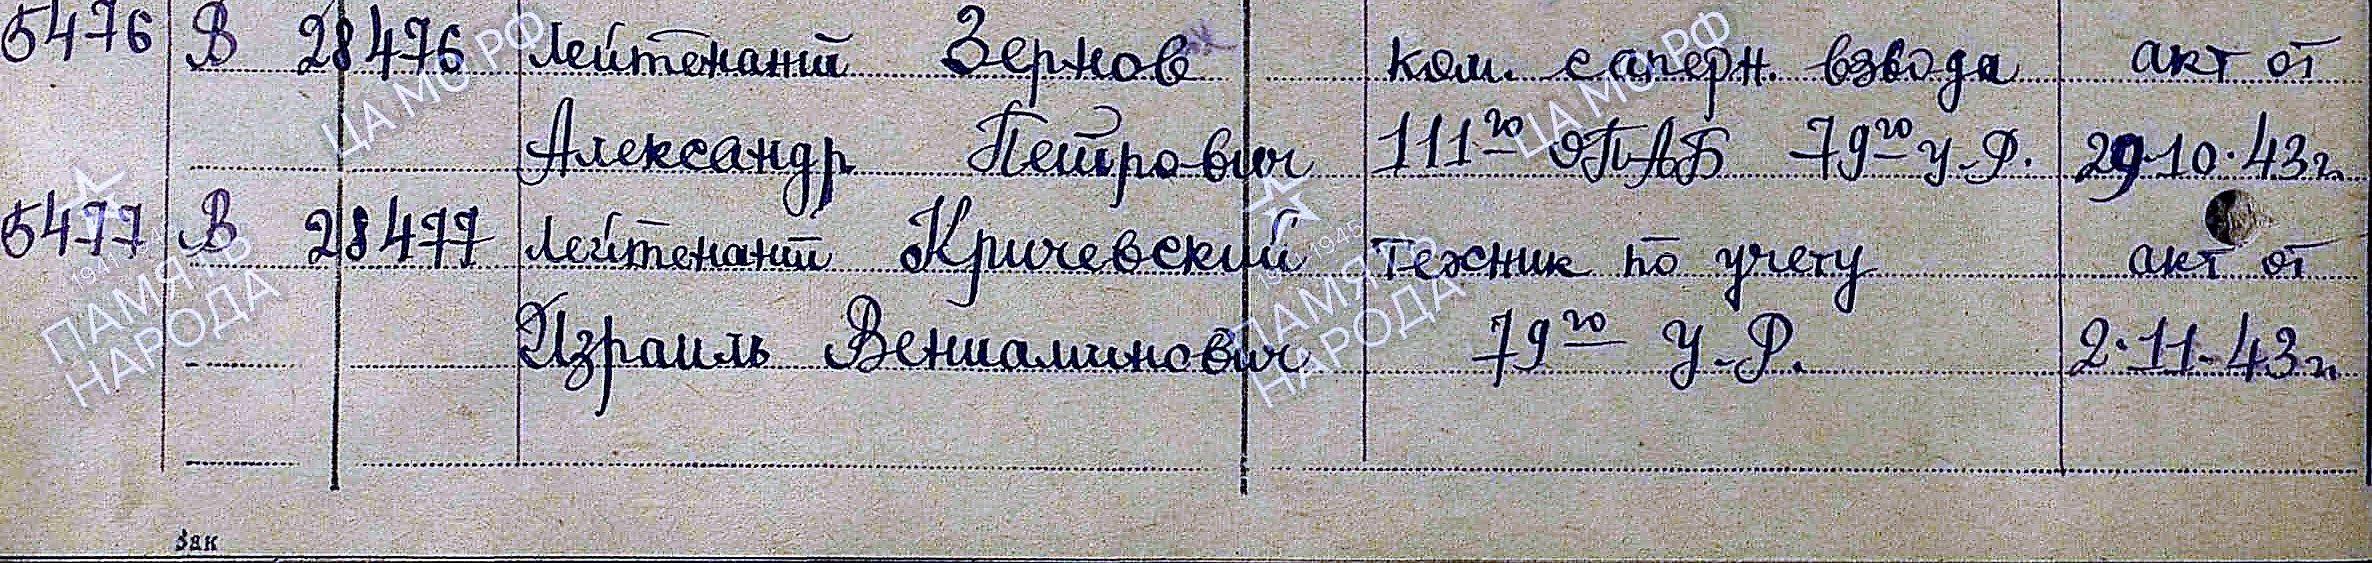 5476 В 28476 Лейтенант Зернов ком. саперн. взвода акт от
Александр Петрович 111го ОПАБ 79го У.Р. 29.10.43г.
5477 В 28477 Лейтенант Кричевский Техник по учету акт от
Израиль Вениаминович 79го У.Р. 2.11.43г.
Зак
ЦА МО РФ
ЦА МО РФ
1941 1945
ПАМЯТЬ
НАРОДА
1945
ПАМЯТЬ
НАРОДА